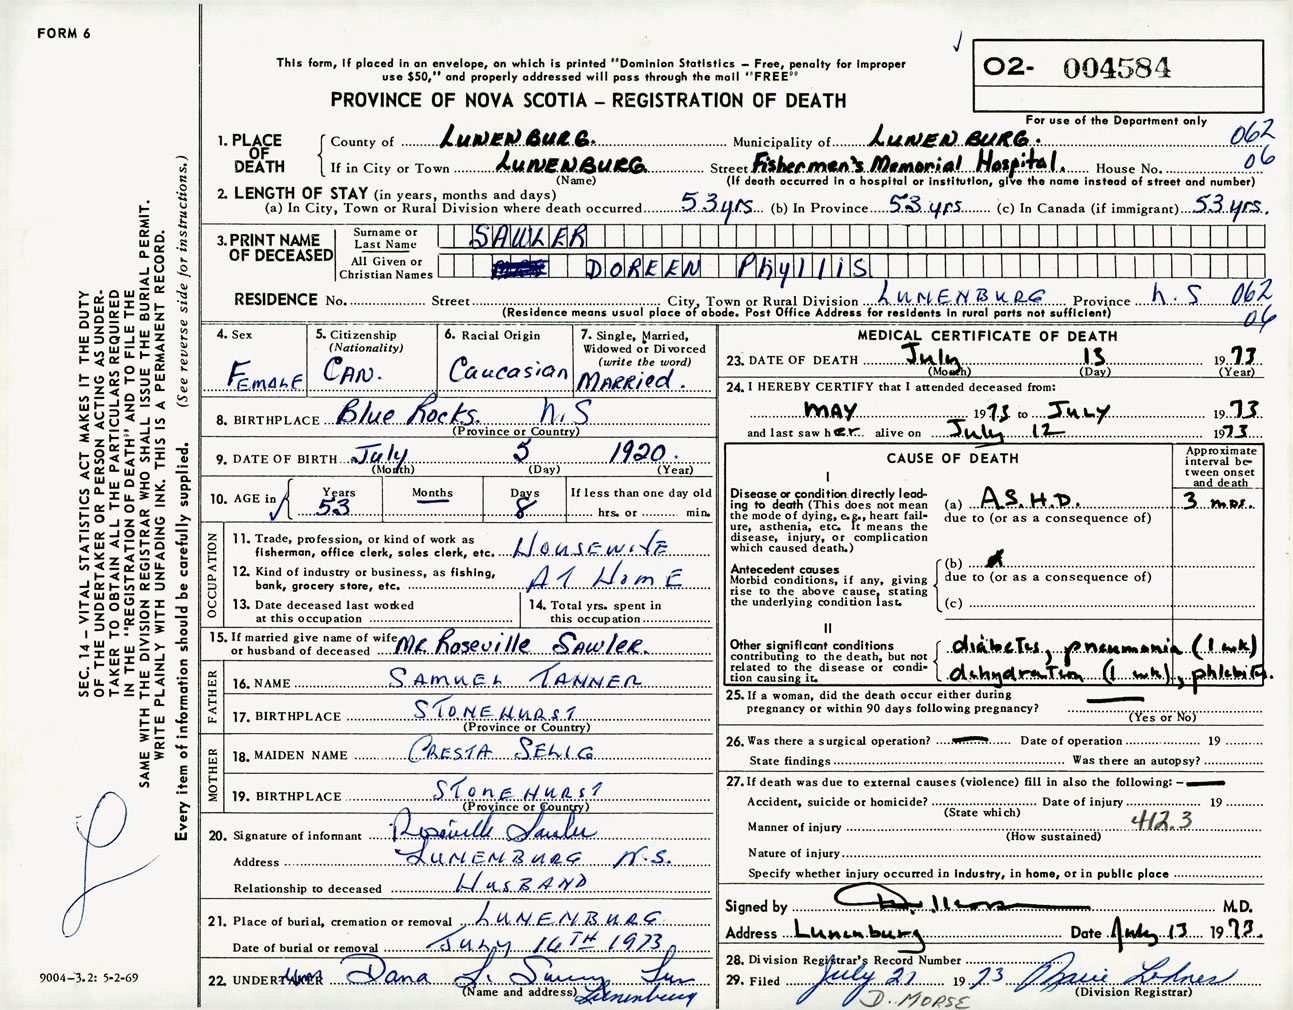 FORM 6
This form, if placed in an envelope, on which is printed "Dominion Statistics – Free, penalty for improper
use $50," and properly addressed will pass through the mail "FREE"
PROVINCE OF NOVA SCOTIA – REGISTRATION OF DEATH
02- 004584
For use of the Department only
SEC. 14 – VITAL STATISTICS ACT MAKES IT THE DUTY
OF THE UNDERTAKER OR PERSON ACTING AS UNDER-
TAKER TO OBTAIN ALL THE PARTICULARS REQUIRED
IN THE "REGISTRATION OF DEATH" AND TO FILE THE
SAME WITH THE DIVISION REGISTRAR WHO SHALL ISSUE THE BURIAL PERMIT.
WRITE PLAINLY WITH UNFADING INK. THIS IS A PERMANENT RECORD.
Every item of information should be carefully supplied. (See reverse side for instructions.)
1. PLACE OF DEATH
County of LUNENBURG. Municipality of LUNENBURG. 062
If in City or Town LUNENBURG Street Fishermen's Memorial Hospital. House No. 06
(Name) (If death occurred in a hospital or institution, give the name instead of street and number)
2. LENGTH OF STAY (in years, months and days)
(a) In City, Town or Rural Division where death occurred 53 yrs (b) In Province 53 yrs (c) In Canada (if immigrant) 53 yrs.
3. PRINT NAME OF DECEASED
Surname or Last Name SAWLER
All Given or Christian Names DOREEN Phyllis
RESIDENCE No. Street City, Town or Rural Division LUNENBURG Province N.S 062
(Residence means usual place of abode. Post Office Address for residents in rural parts not sufficient) 06
4. Sex FEMALE
5. Citizenship (Nationality) CAN.
6. Racial Origin Caucasian
7. Single, Married, Widowed or Divorced (write the word) MARRIED.
8. BIRTHPLACE Blue Rocks. N.S
(Province or Country)
9. DATE OF BIRTH July 5 1920.
(Month) (Day) (Year)
10. AGE in Years 53 Months — Days 8 If less than one day old hrs. or min.
OCCUPATION
11. Trade, profession, or kind of work as
fisherman, office clerk, sales clerk, etc. HOUSEWIFE
12. Kind of industry or business, as fishing,
bank, grocery store, etc. AT HOME
13. Date deceased last worked
at this occupation
14. Total yrs. spent in
this occupation
15. If married give name of wife
or husband of deceased MR. Roseville SAWLER.
FATHER
16. NAME SAMUEL TANNER
17. BIRTHPLACE STONEHURST
(Province or Country)
MOTHER
18. MAIDEN NAME CRESTA SELIG
19. BIRTHPLACE STONEHURST
(Province or Country)
20. Signature of informant Roseville Sawler
Address LUNENBURG N.S.
Relationship to deceased HUSBAND
21. Place of burial, cremation or removal LUNENBURG
Date of burial or removal JULY 16TH 1973
22. UNDERTAKER Dana L. Son
(Name and address) Lunenburg
9004–3.2: 5-2-69
MEDICAL CERTIFICATE OF DEATH
23. DATE OF DEATH July 13 1973
(Month) (Day) (Year)
24. I HEREBY CERTIFY that I attended deceased from:
MAY 1973 to JULY 1973
and last saw her alive on July 12 1973
CAUSE OF DEATH
Approximate interval between onset and death
I
Disease or condition directly lead-
ing to death (This does not mean
the mode of dying, e.g., heart fail-
ure, asthenia, etc. It means the
disease, injury, or complication
which caused death.)
(a) A.S.H.D. 3 mos.
due to (or as a consequence of)
Antecedent causes
Morbid conditions, if any, giving
rise to the above cause, stating
the underlying condition last.
(b)
due to (or as a consequence of)
(c)
II
Other significant conditions
contributing to the death, but not
related to the disease or condi-
tion causing it.
diabetes, pneumonia (1 wk)
dehydration (1 wk), phlebitis.
25. If a woman, did the death occur either during
pregnancy or within 90 days following pregnancy? —
(Yes or No)
26. Was there a surgical operation? — Date of operation 19
State findings Was there an autopsy?
27. If death was due to external causes (violence) fill in also the following: – —
Accident, suicide or homicide? Date of injury 19
(State which)
Manner of injury 412.3
(How sustained)
Nature of injury
Specify whether injury occurred in industry, in home, or in public place
Signed by M.D.
Address Lunenburg Date July 13 1973.
28. Division Registrar's Record Number
29. Filed July 27 1973
(Division Registrar)
D. MORSE